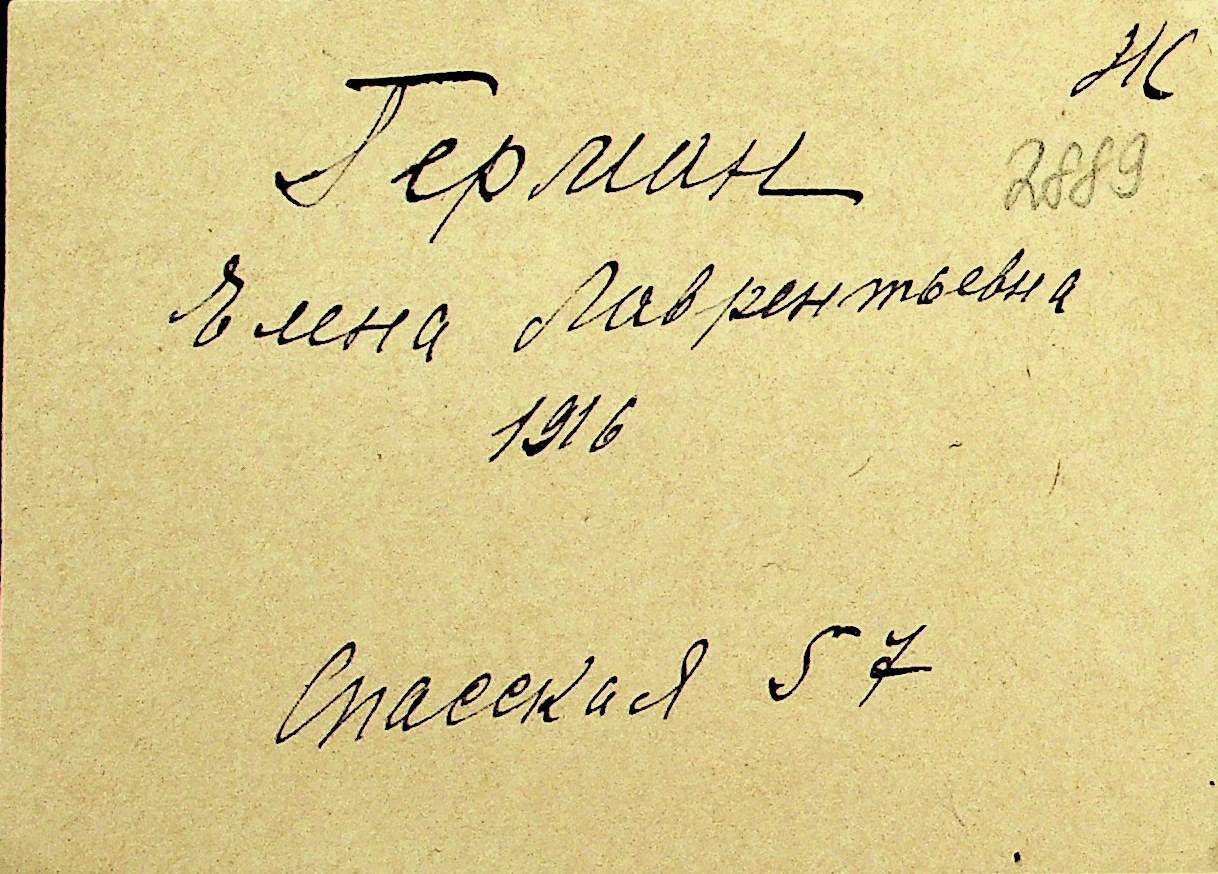 НС
Герман
2889
Елена Лаврентьевна
1916
Спасская 57